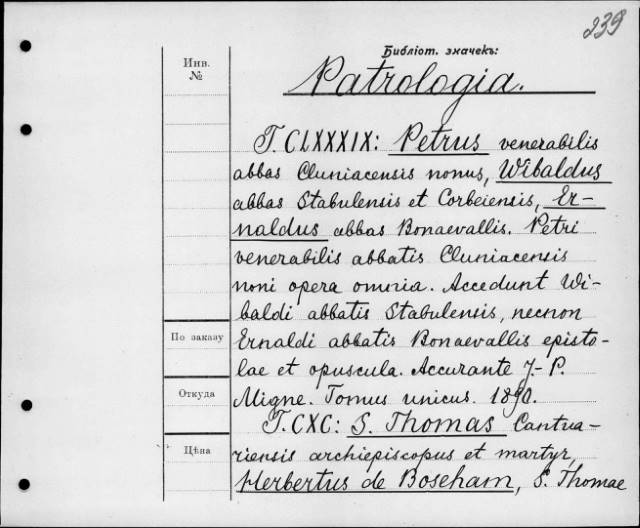 239
Библіот. значекъ:
Инв.
№
Patrologia.
T. CLXXXIX: Petrus venerabilis
abbas Cluniacensis nonus, Wibaldus
abbas Stabulensis et Corbeiensis, Er-
naldus abbas Bonaevallis. Petri
venerabilis abbatis Cluniacensis
noni opera omnia. Accedunt Wi-
baldi abbatis Stabulensis, necnon
По заказу
Ernaldi abbatis Bonaevallis episto-
lae et opuscula. Accurante J-P.
Откуда
Migne. Tomus unicus. 1890.
T. CXC: S. Thomas Cantua-
Цѣна
riensis archiepiscopus et martyr,
Herbertus de Boseham, S. Thomae